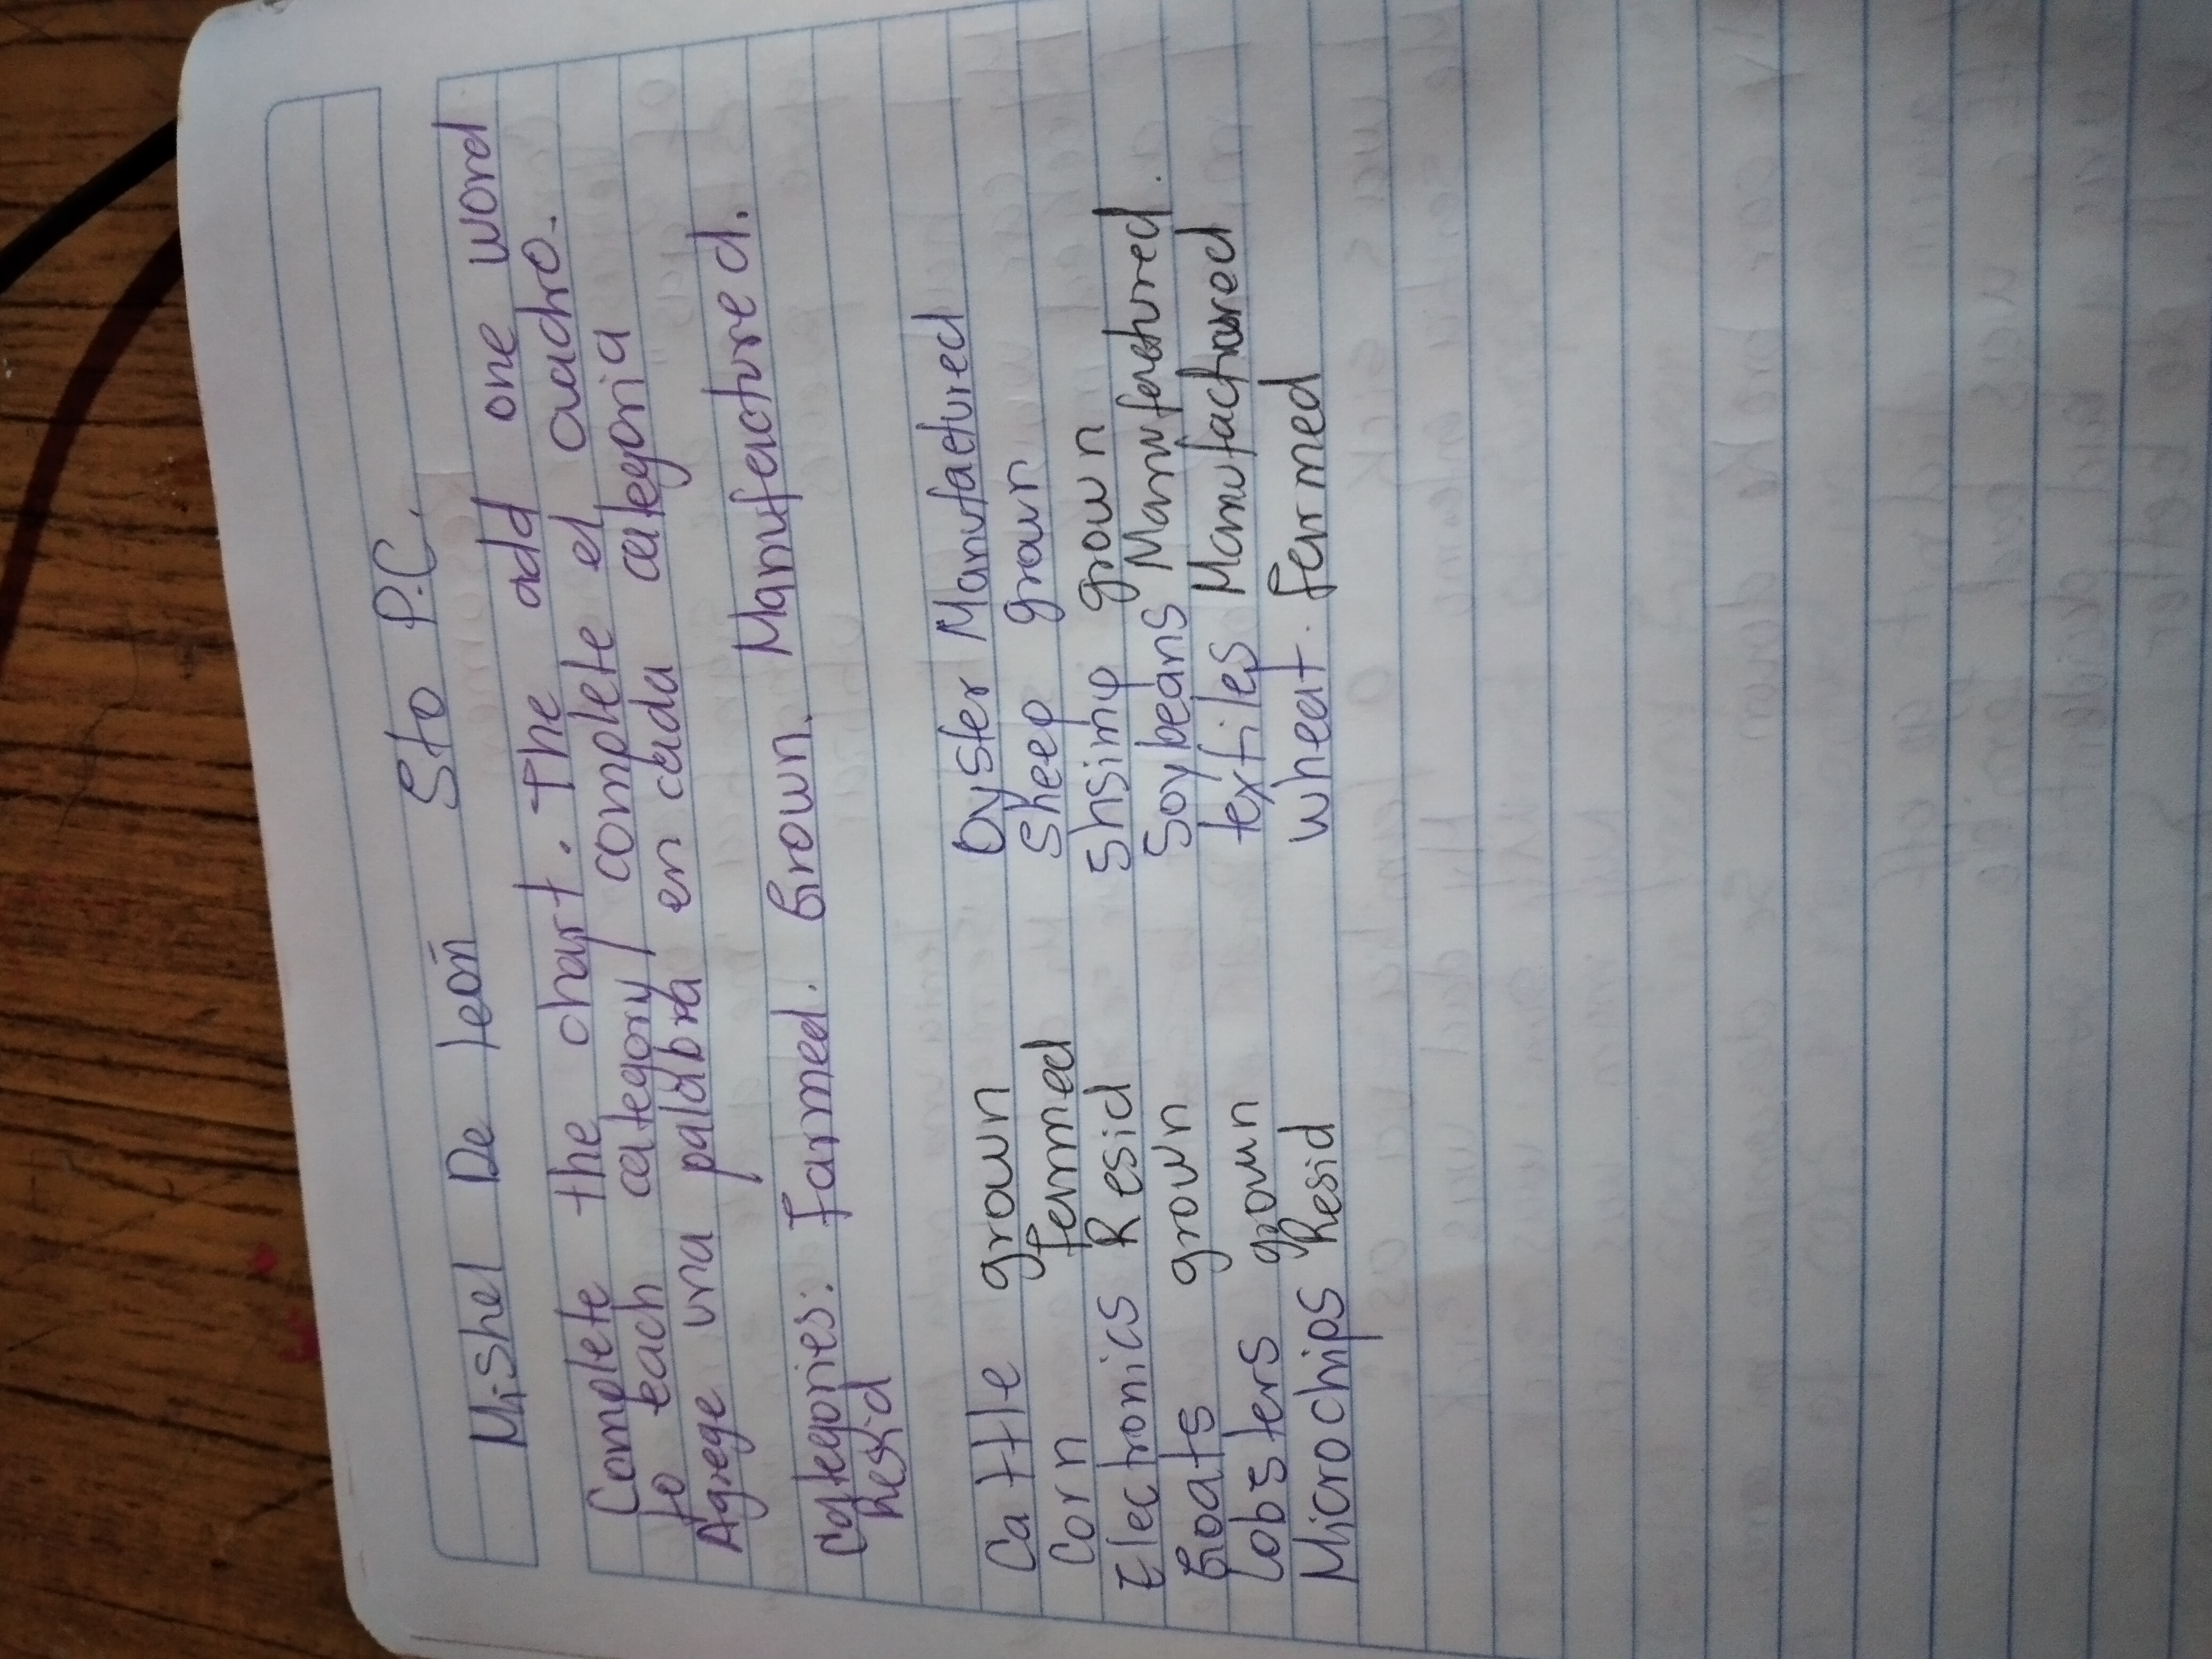 Mishel De león 5to P.C.
Complete the chart. The add one word
to each category / complete el cuadro.
Agrege una palabra en cada categoria
Categories: Farmed. Grown. Manufenctured.
Resid
Cattle grown
Corn fermed
Electronics Resid
Goats grown
Lobsters grown
Microchips Resid
Oyster Manufactured
Sheep grown
Shsimp grown
Soybeans Manufenctured.
textiles Manufactoured
wheat. fermed